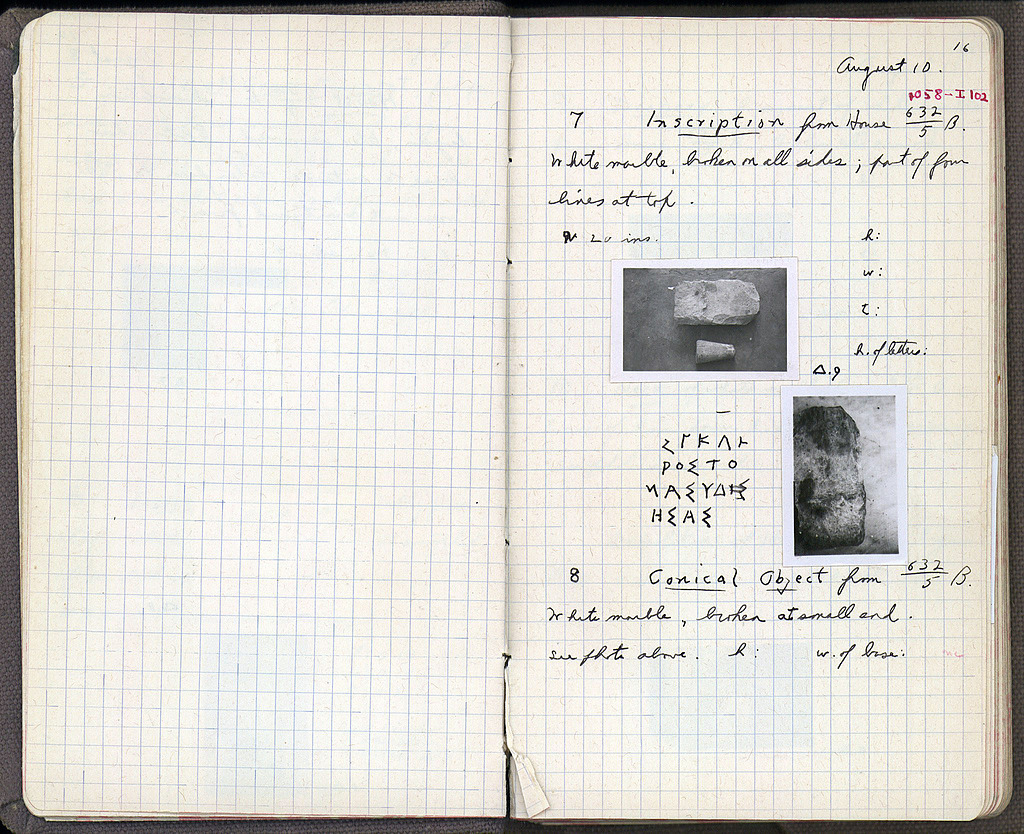 16
August 10.
1058-I 102
7 Inscription from House 632/5 B.
White marble, broken on all sides; part of four
lines at top.
20 ins.
h:
w:
t:
h. of letters:
Δ.9
ΣΓΚΛΗ
ΡΟΣΤΟ
ΝΑΣΥΔΙΣ
ΗΣΑΣ
8 Conical Object from 632/5 B.
White marble, broken at small end.
see photo above. h: w. of base: